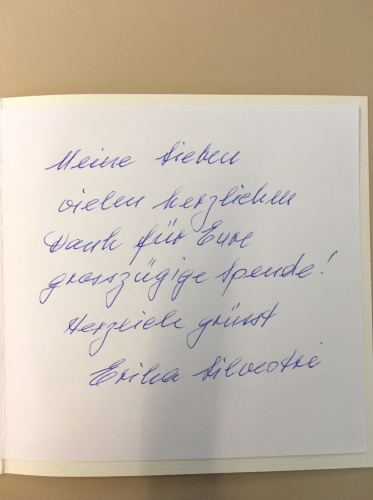 Meine Lieben
vielen herzlichen
Dank für Eure
grosszügige Spende!
Herzlich grüsst
Erika Silvestri